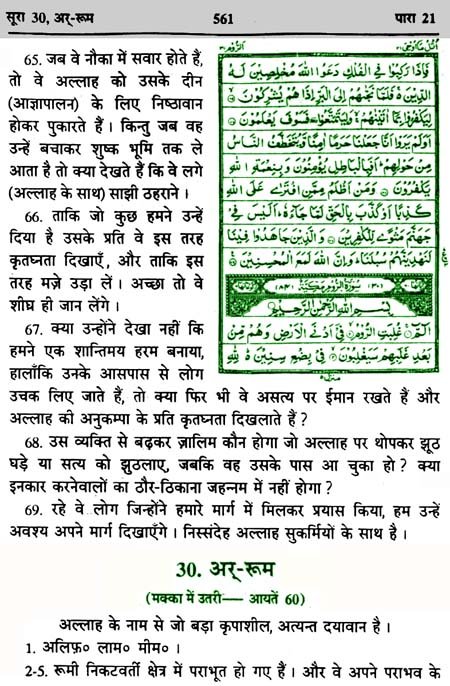 सूरा 30, अर्-रूम 561 पारा 21
اتل ما اوحی ٢١ الرّوم ٣٠
فَاِذَا رَكِبُوْا فِي الْفُلْكِ دَعَوُا اللّٰهَ مُخْلِصِيْنَ لَهُ
الدِّيْنَ ۚ فَلَمَّا نَجّٰىهُمْ اِلَى الْبَرِّ اِذَا هُمْ يُشْرِكُوْنَ
لِيَكْفُرُوْا بِمَآ اٰتَيْنٰهُمْ ۙ وَلِيَتَمَتَّعُوْا ۫ فَسَوْفَ يَعْلَمُوْنَ
اَوَلَمْ يَرَوْا اَنَّا جَعَلْنَا حَرَمًا اٰمِنًا وَّيُتَخَطَّفُ النَّاسُ
مِنْ حَوْلِهِمْ ؕ اَفَبِالْبَاطِلِ يُؤْمِنُوْنَ وَبِنِعْمَةِ اللّٰهِ
يَكْفُرُوْنَ وَمَنْ اَظْلَمُ مِمَّنِ افْتَرٰى عَلَى اللّٰهِ
كَذِبًا اَوْ كَذَّبَ بِالْحَقِّ لَمَّا جَآءَهٗ ؕ اَلَيْسَ فِيْ
جَهَنَّمَ مَثْوًى لِّلْكٰفِرِيْنَ وَالَّذِيْنَ جَاهَدُوْا فِيْنَا
لَنَهْدِيَنَّهُمْ سُبُلَنَا ؕ وَاِنَّ اللّٰهَ لَمَعَ الْمُحْسِنِيْنَ
سُوْرَةُ الرُّوْمِ مَكِّيَّةٌ
بِسْمِ اللّٰهِ الرَّحْمٰنِ الرَّحِيْمِ
الٓمّٓ غُلِبَتِ الرُّوْمُ فِيْٓ اَدْنَى الْاَرْضِ وَهُمْ مِّنْ
بَعْدِ غَلَبِهِمْ سَيَغْلِبُوْنَ فِيْ بِضْعِ سِنِيْنَ ؕ لِلّٰهِ
65. जब वे नौका में सवार होते हैं,
तो वे अल्लाह को उसके दीन
(आज्ञापालन) के लिए निष्ठावान
होकर पुकारते हैं। किन्तु जब वह
उन्हें बचाकर शुष्क भूमि तक ले
आता है तो क्या देखते हैं कि वे लगे
(अल्लाह के साथ) साझी ठहराने।
66. ताकि जो कुछ हमने उन्हें
दिया है उसके प्रति वे इस तरह
कृतघ्नता दिखाएँ, और ताकि इस
तरह मज़े उड़ा लें। अच्छा तो वे
शीघ्र ही जान लेंगे।
67. क्या उन्होंने देखा नहीं कि
हमने एक शान्तिमय हरम बनाया,
हालाँकि उनके आसपास से लोग
उचक लिए जाते हैं, तो क्या फिर भी वे असत्य पर ईमान रखते हैं और
अल्लाह की अनुकम्पा के प्रति कृतघ्नता दिखलाते हैं?
68. उस व्यक्ति से बढ़कर ज़ालिम कौन होगा जो अल्लाह पर थोपकर झूठ
घड़े या सत्य को झुठलाए, जबकि वह उसके पास आ चुका हो? क्या
इनकार करनेवालों का ठौर-ठिकाना जहन्नम में नहीं होगा?
69. रहे वे लोग जिन्होंने हमारे मार्ग में मिलकर प्रयास किया, हम उन्हें
अवश्य अपने मार्ग दिखाएँगे। निस्संदेह अल्लाह सुकर्मियों के साथ है।
30. अर्-रूम
(मक्का में उतरी— आयतें 60)
अल्लाह के नाम से जो बड़ा कृपाशील, अत्यन्त दयावान है।
1. अलिफ़॰ लाम॰ मीम॰।
2-5. रूमी निकटवर्ती क्षेत्र में पराभूत हो गए हैं। और वे अपने पराभव के